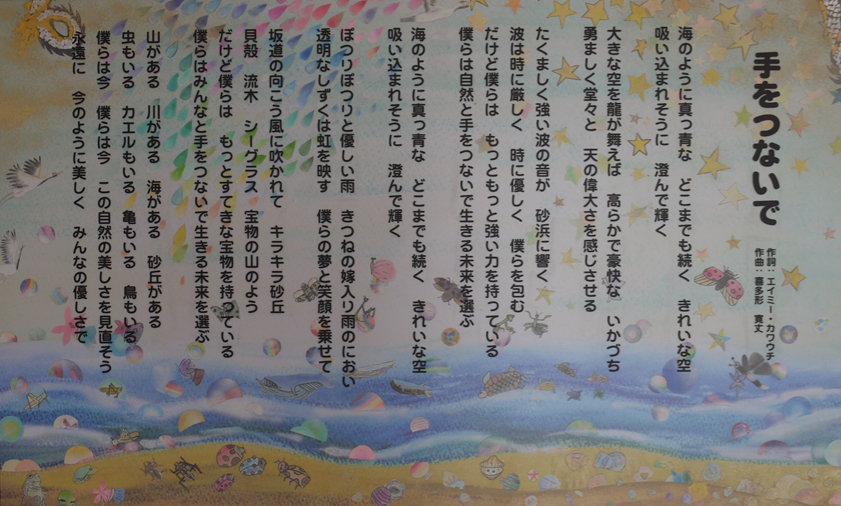 手をつないで
作詞：エイミー・カワウチ
作曲：喜多形　寛丈
海のように真っ青な　どこまでも続く　きれいな空
吸い込まれそうに　澄んで輝く
大きな空を龍が舞えば　高らかで豪快な　いかづち
勇ましく堂々と　天の偉大さを感じさせる
たくましく強い波の音が　砂浜に響く
波は時に厳しく　時に優しく　僕らを包む
だけど僕らは　もっともっと強い力を持っている
僕らは自然と手をつないで生きる未来を選ぶ
海のように真っ青な　どこまでも続く　きれいな空
吸い込まれそうに　澄んで輝く
ぽつりぽつりと優しい雨　きつねの嫁入り雨のにおい
透明なしずくは虹を映す　僕らの夢と笑顔を乗せて
坂道の向こう風に吹かれて　キラキラ砂丘
貝殻　流木　シーグラス　宝物の山のよう
だけど僕らは　もっとすてきな宝物を持っている
僕らはみんなと手をつないで生きる未来を選ぶ
山がある　川がある　海がある　砂丘がある
虫もいる　カエルもいる　亀もいる　鳥もいる
僕らは今　僕らは今　この自然の美しさを見直そう
永遠に　今のように美しく　みんなの優しさで